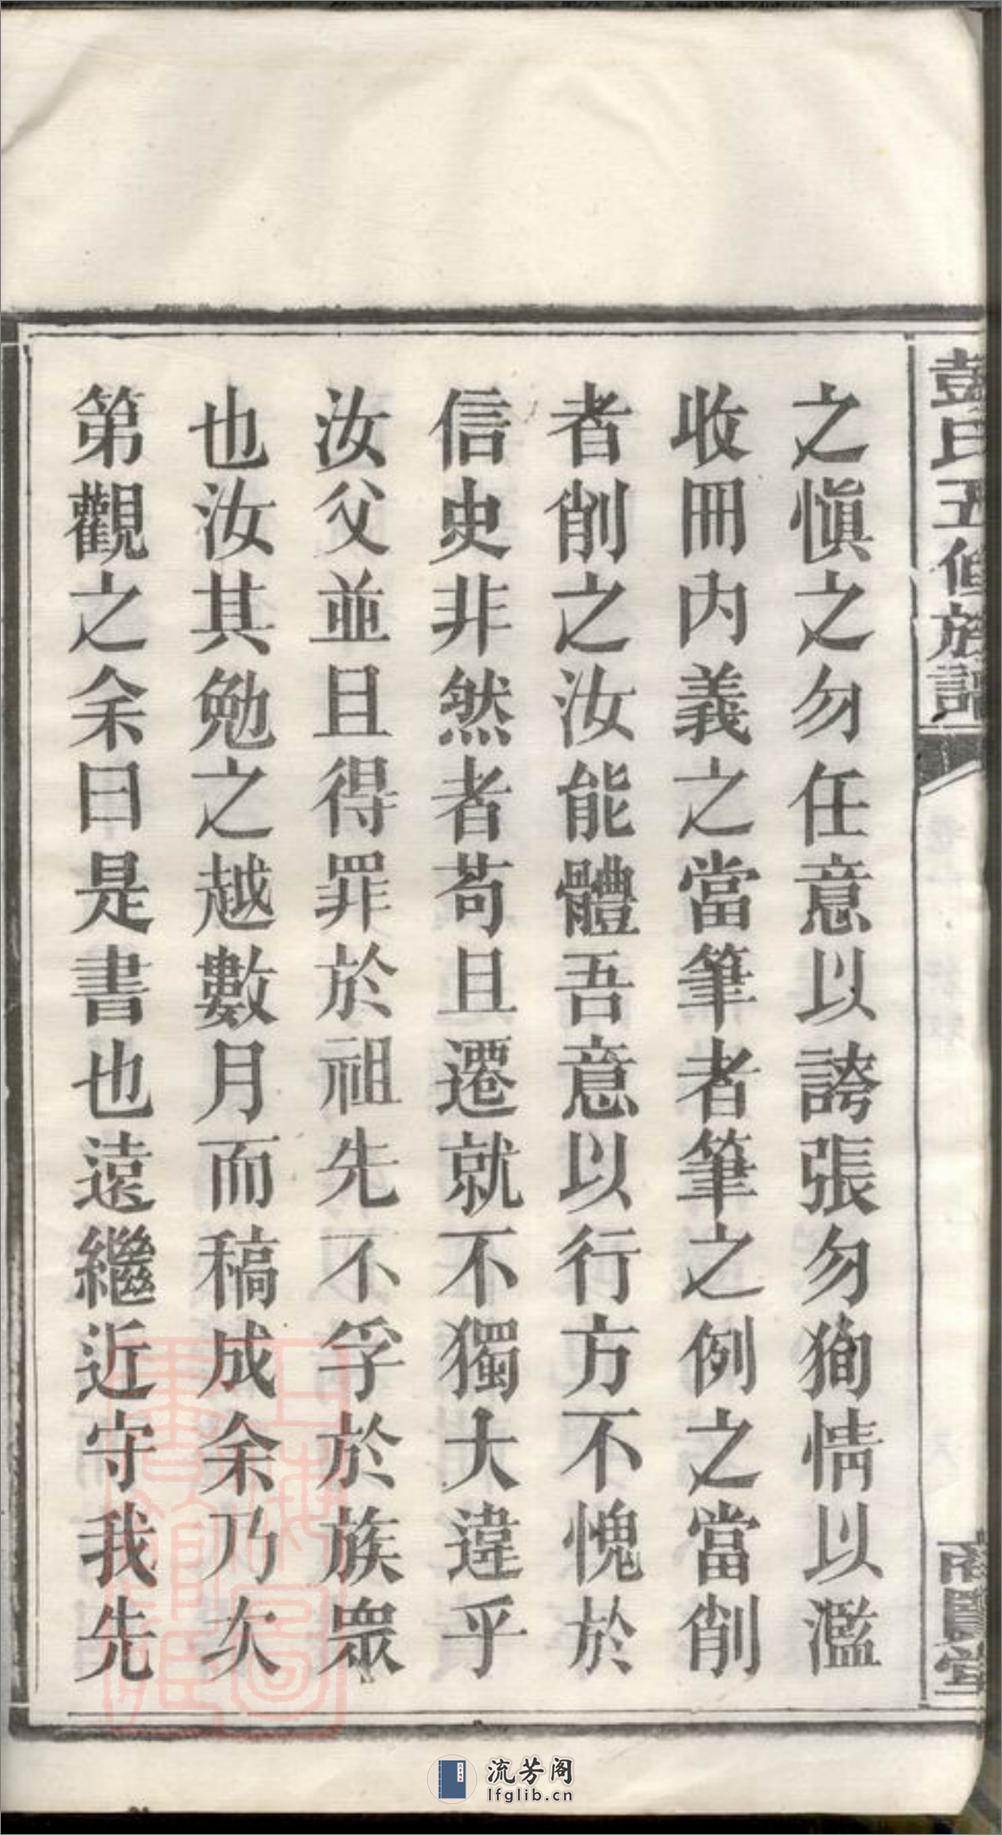 之愼之勿任意以誇張勿狥情以濫
收冊内義之當筆者筆之例之當削
者削之汝能體吾意以行方不愧於
信史非然者苟且遷就不獨大違乎
汝父並且得罪於祖先不孚於族衆
也汝其勉之越數月而稿成余乃次
第觀之余曰是書也遠繼近守我先
彭氏五修族譜
商賢堂
上海圖書館藏
流芳阁
lfglib.cn